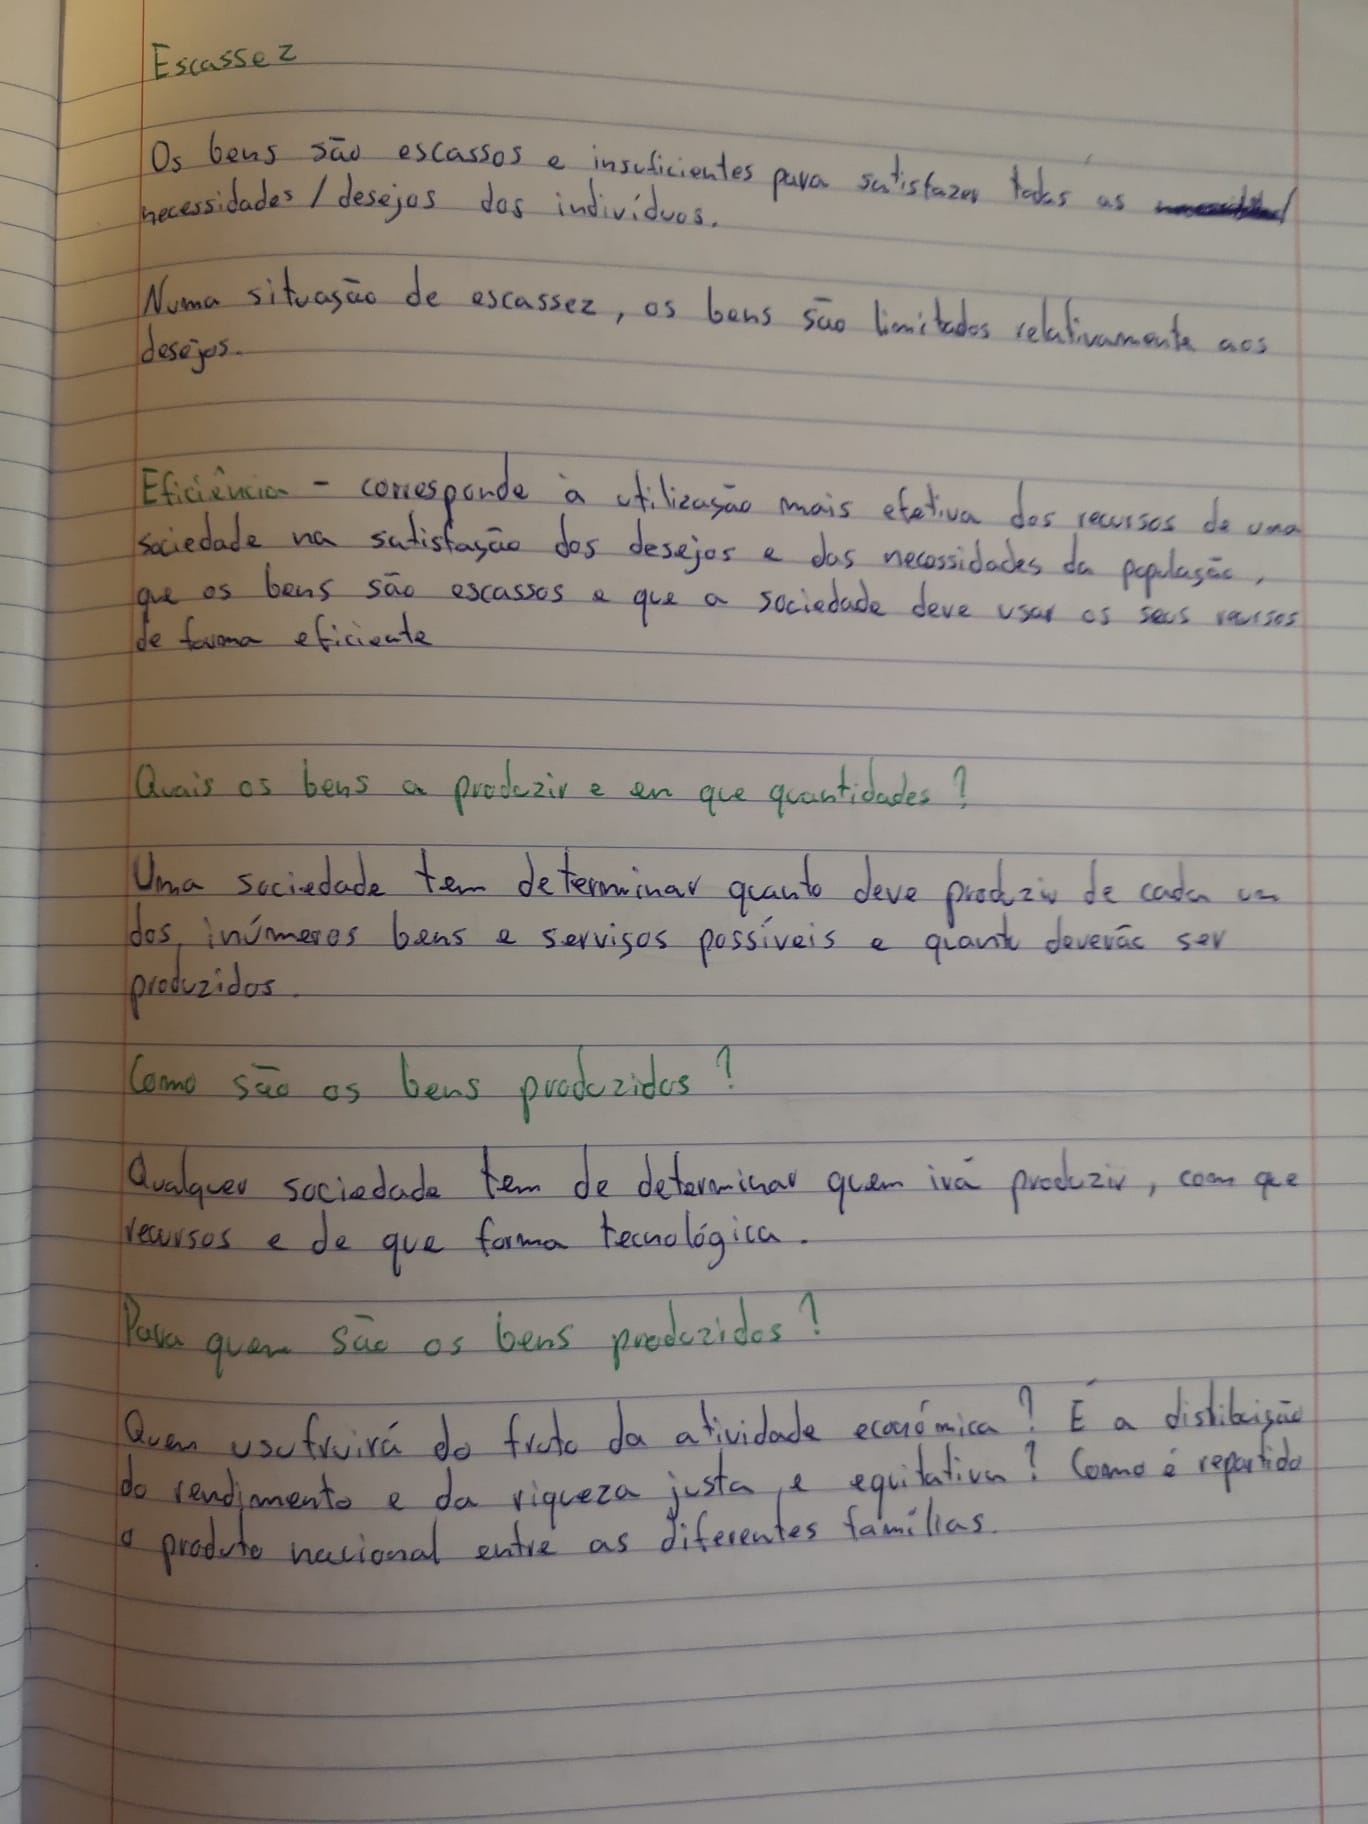 Escassez
Os bens são escassos e insuficientes para satisfazer todas as
necessidades / desejos dos indivíduos.
Numa situação de escassez, os bens são limitados relativamente aos
desejos.
Eficiência - corresponde à utilização mais efetiva dos recursos de uma
sociedade na satisfação dos desejos e das necessidades da população,
que os bens são escassos e que a sociedade deve usar os seus recursos
de forma eficiente
Quais os bens a produzir e em que quantidades?
Uma sociedade tem determinar quanto deve produzir de cada um
dos inúmeros bens e serviços possíveis e quanto deverão ser
produzidos.
Como são os bens produzidos?
Qualquer sociedade tem de determinar quem irá produzir, com que
recursos e de que forma tecnológica.
Para quem são os bens produzidos?
Quem usufruirá do fruto da atividade económica? É a distibuição
do rendimento e da riqueza justa e equitativa? Como é repartido
o produto nacional entre as diferentes famílias.